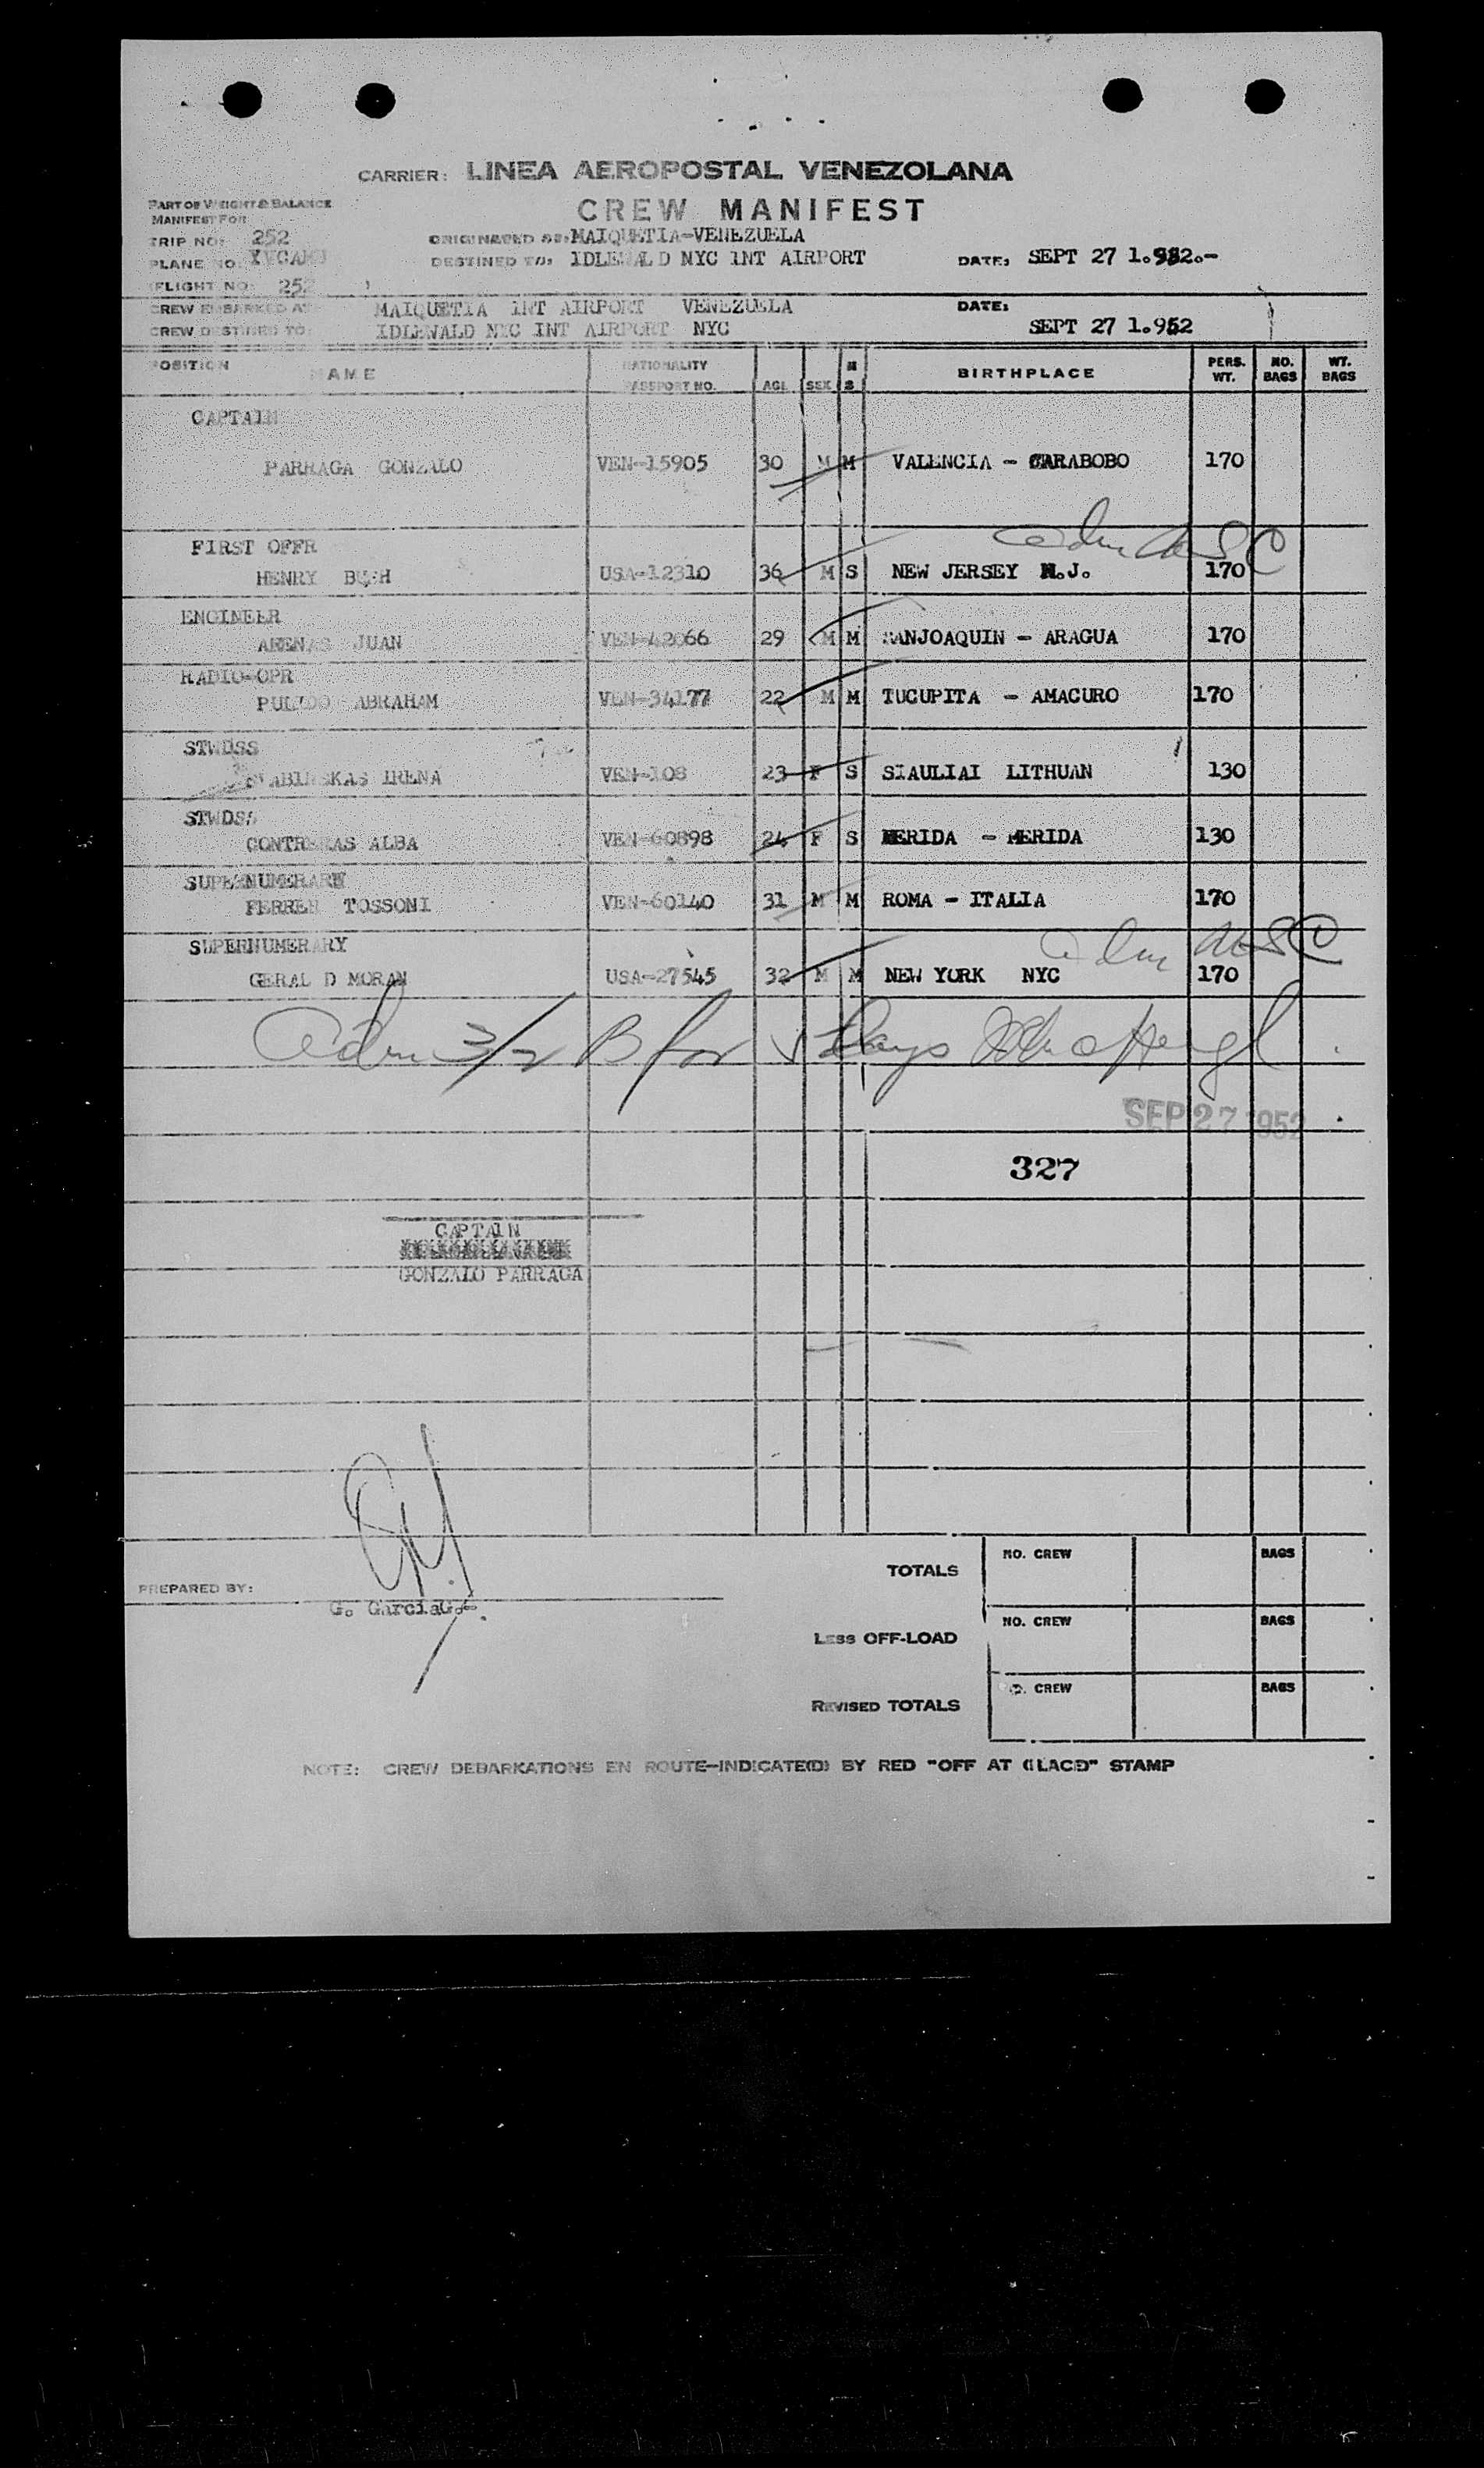 CARRIER: LINEA AEROPOSTAL VENEZOLANA
CREW MANIFEST
PART OF WEIGHT & BALANCE
MANIFEST FOR
TRIP NO: 252
ORIGINATED AT: MAIQUETIA-VENEZUELA
PLANE NO:
DESTINED TO: IDLEWALD NYC INT AIRPORT DATE: SEPT 27 1.952.-
FLIGHT NO: 252
CREW EMBARKED AT: MAIQUETIA INT AIRPORT VENEZUELA DATE:
CREW DESTINED TO: IDLEWALD NYC INT AIRPORT NYC SEPT 27 1.952
POSITION NAME NATIONALITY PASSPORT NO. AGE SEX M S BIRTHPLACE PERS. WT. NO. BAGS WT. BAGS
CAPTAIN
PARRAGA GONZALO VEN-15905 30 M M VALENCIA - CARABOBO 170
Adm USC
FIRST OFFR
HENRY BUSH USA-12310 36 M S NEW JERSEY N.J. 170
ENGINEER
ARENAS JUAN VEN-42066 29 M M SANJOAQUIN - ARAGUA 170
RADIO-OPR
PULIDO ABRAHAM VEN-34177 22 M M TUCUPITA - AMACURO 170
STWDSS
IRENA VEN-108 23 F S SIAULIAI LITHUAN 130
STWDSS
CONTRERAS ALBA VEN-60898 24 F S MERIDA - MERIDA 130
SUPERNUMERARY
FERRER TOSSONI VEN-60140 31 M M ROMA - ITALIA 170
Adm USC
SUPERNUMERARY
GERAL D MORAN USA-27545 32 M M NEW YORK NYC 170
Adm 3/2 B for days
SEP 27 1952
327
CAPTAIN
GONZALO PARRAGA
TOTALS NO. CREW BAGS
PREPARED BY:
G. GarciaG.-
LESS OFF-LOAD NO. CREW BAGS
REVISED TOTALS NO. CREW BAGS
NOTE: CREW DEBARKATIONS EN ROUTE-INDICATE(D) BY RED "OFF AT (PLACE)" STAMP